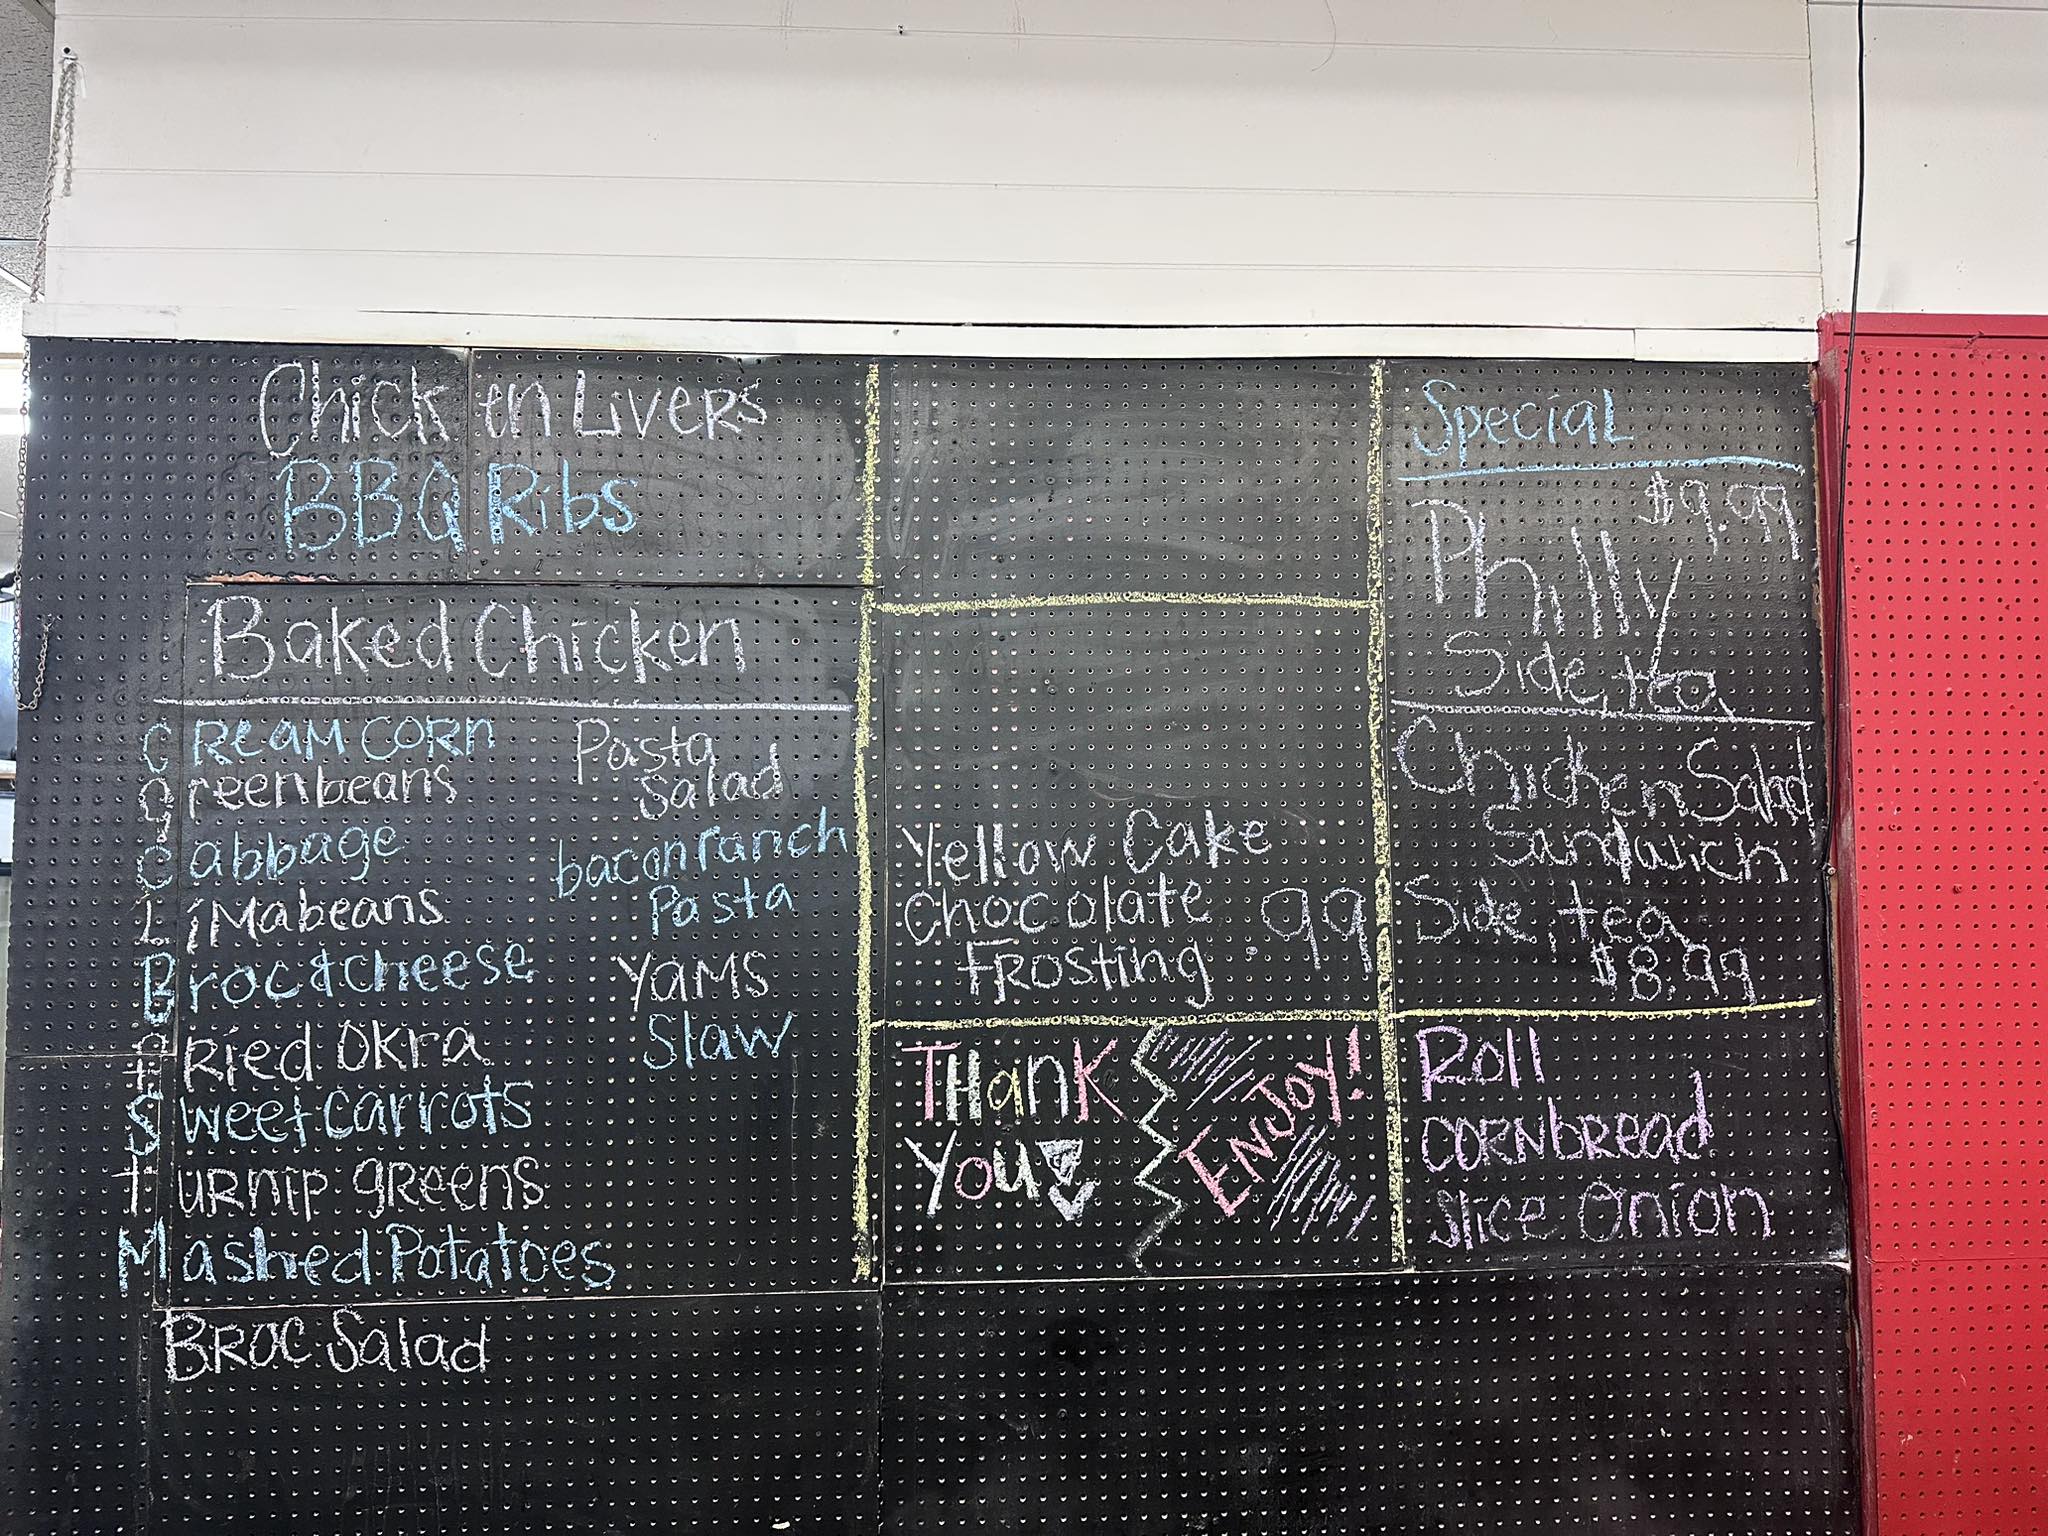 Chicken Livers
BBQ Ribs
Baked Chicken
CReAM CORN
Greenbeans
Cabbage
LiMabeans
Broc & cheese
FRied Okra
Sweet carrots
tuRnip gReens
Mashed Potatoes
BRoc Salad
Pasta
Salad
bacon ranch
Pasta
YaMs
Slaw
Yellow Cake
Chocolate .99
FRosting
THanK
You
ENJoy!
SpeciaL
$9.99
Philly
Side, tea
Chicken Salad
Sandwich
Side, tea
$8.99
Roll
CORNbRead
Slice Onion